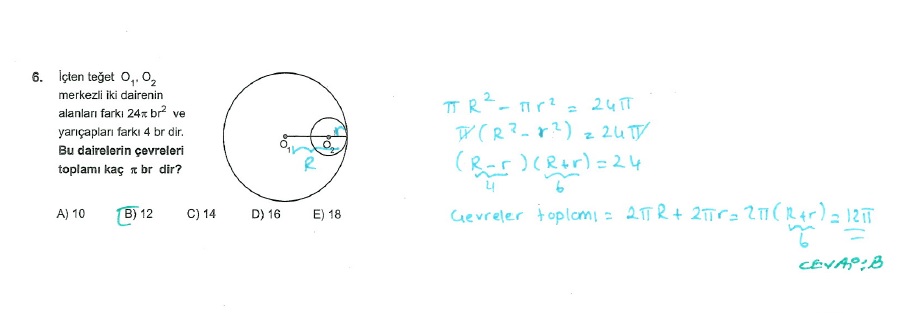 6. İçten teğet O₁, O₂
merkezli iki dairenin
alanları farkı 24π br² ve
yarıçapları farkı 4 br dir.
Bu dairelerin çevreleri
toplamı kaç π br dir?
O₁
O₂
r
R
A) 10 B) 12 C) 14 D) 16 E) 18
πR² - πr² = 24π
π(R² - r²) = 24π
(R-r)(R+r) = 24
4 6
Çevreler toplamı = 2πR + 2πr = 2π(R+r) = 12π
6
CEVAP: B